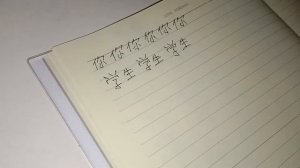 你你你你你你
学生学生学生